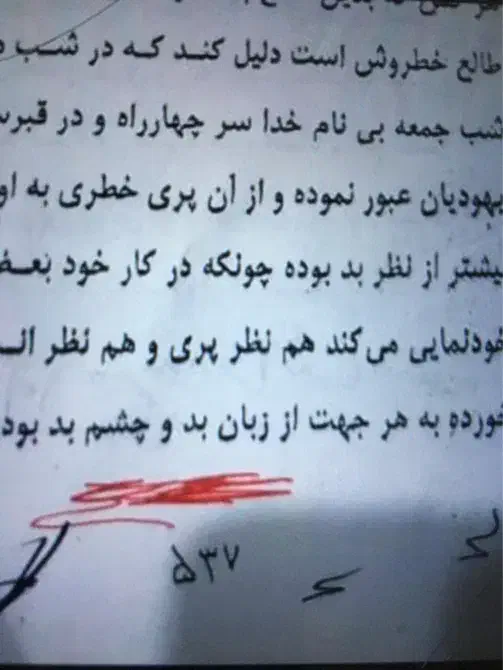 طالع خطروش است دلیل کند که در شب
شب جمعه بی نام خدا سر چهارراه و در قبرس
یهودیان عبور نموده و از آن پری خطری به او
بیشتر از نظر بد بوده چونکه در کار خود بعض
خودنمایی می‌کند هم نظر پری و هم نظر انـ
خورده به هر جهت از زبان بد و چشم بد بود
۵۳۷